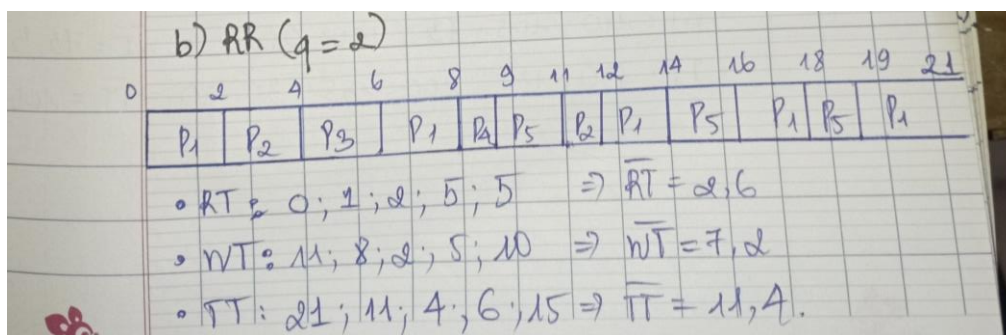 b) RR (q = 2)
0 2 4 6 8 9 11 12 14 16 18 19 21
P1 P2 P3 P1 P4 P5 P2 P1 P5 P1 P5 P1
• RT: 0; 1; 2; 5; 5 => RT = 2,6
• WT: 11; 8; 2; 5; 10 => WT = 7,2
• TT: 21; 11; 4; 6; 15 => TT = 11,4.